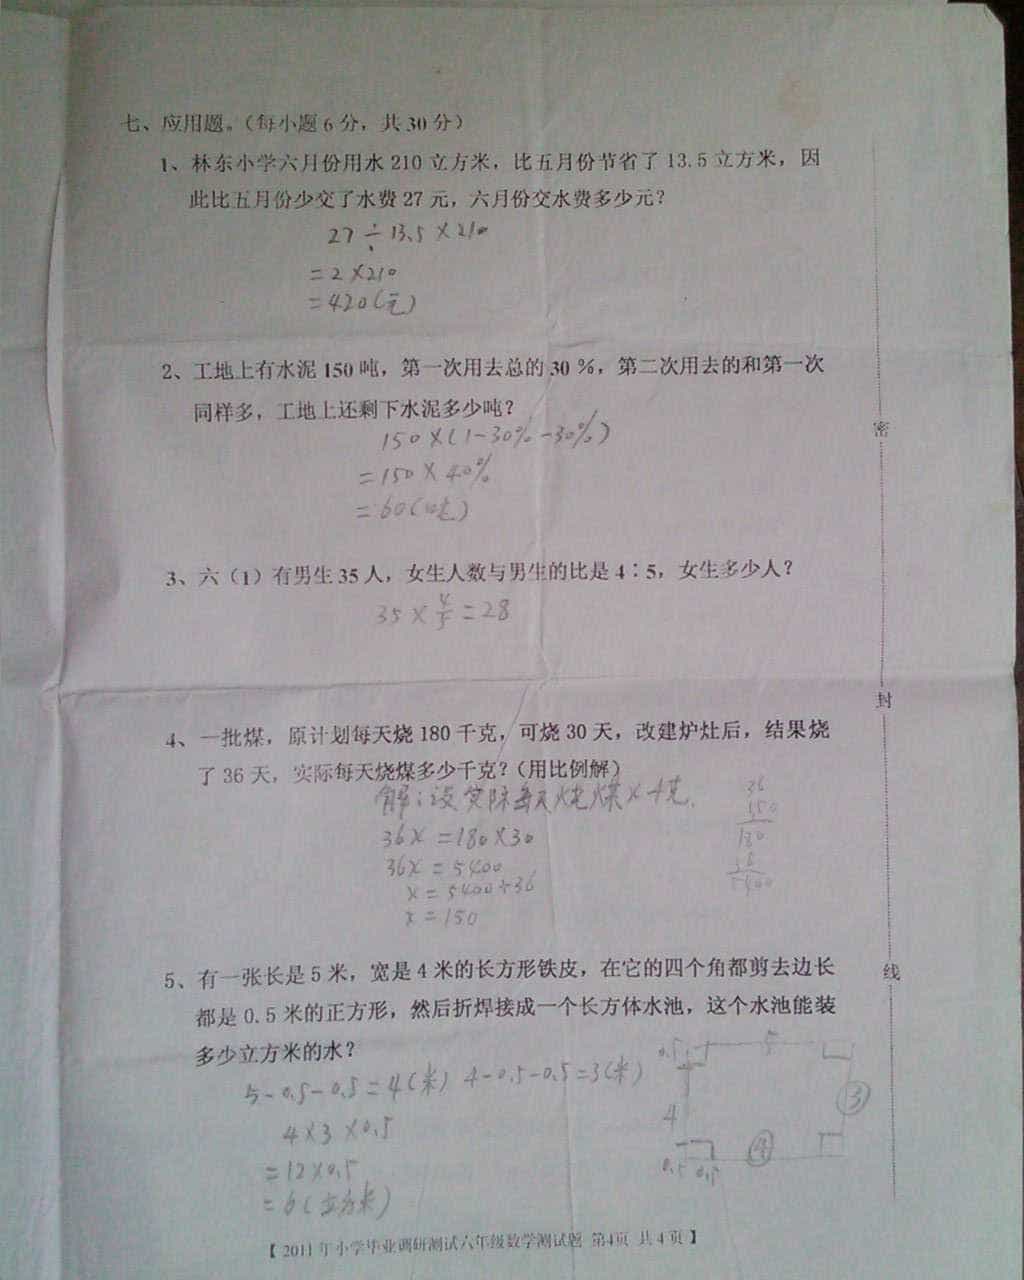 七、应用题。（每小题6分，共30分）
1、林东小学六月份用水210立方米，比五月份节省了13.5立方米，因
此比五月份少交了水费27元，六月份交水费多少元？
27÷13.5×210
=2×210
=420(元)
2、工地上有水泥150吨，第一次用去总的30%，第二次用去的和第一次
同样多，工地上还剩下水泥多少吨？
150×(1-30%-30%)
=150×40%
=60(吨)
3、六（1）有男生35人，女生人数与男生的比是4∶5，女生多少人？
35×4/5=28
4、一批煤，原计划每天烧180千克，可烧30天，改建炉灶后，结果烧
了36天，实际每天烧煤多少千克？（用比例解）
解：设实际每天烧煤x千克.
36x=180×30
36x=5400
x=5400÷36
x=150
36
150
180
36
5400
5、有一张长是5米，宽是4米的长方形铁皮，在它的四个角都剪去边长
都是0.5米的正方形，然后折焊接成一个长方体水池，这个水池能装
多少立方米的水？
5-0.5-0.5=4(米) 4-0.5-0.5=3(米)
4×3×0.5
=12×0.5
=6(立方米)
0.5 5
4 ③
④
0.5 0.5
密
封
线
【2011年小学毕业调研测试六年级数学测试题 第4页 共4页】